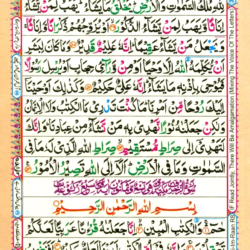 لِلّٰهِ مُلْكُ السَّمٰوٰتِ وَالْاَرْضِ يَخْلُقُ مَا يَشَآءُ يَهَبُ لِمَنْ يَّشَآءُ
اِنَاثًا وَّيَهَبُ لِمَنْ يَّشَآءُ الذُّكُوْرَ اَوْ يُزَوِّجُهُمْ ذُكْرَانًا وَّاِنَاثًا
وَيَجْعَلُ مَنْ يَّشَآءُ عَقِيْمًا اِنَّهٗ عَلِيْمٌ قَدِيْرٌ وَمَا كَانَ لِبَشَرٍ
اَنْ يُّكَلِّمَهُ اللّٰهُ اِلَّا وَحْيًا اَوْ مِنْ وَّرَآئِ حِجَابٍ اَوْ يُرْسِلَ رَسُوْلًا
فَيُوْحِيَ بِاِذْنِهٖ مَا يَشَآءُ اِنَّهٗ عَلِيٌّ حَكِيْمٌ وَكَذٰلِكَ اَوْحَيْنَآ
اِلَيْكَ رُوْحًا مِّنْ اَمْرِنَا مَا كُنْتَ تَدْرِيْ مَا الْكِتٰبُ وَلَا الْاِيْمَانُ
وَلٰكِنْ جَعَلْنٰهُ نُوْرًا نَّهْدِيْ بِهٖ مَنْ نَّشَآءُ مِنْ عِبَادِنَا وَاِنَّكَ
لَتَهْدِيْ اِلٰى صِرَاطٍ مُّسْتَقِيْمٍ صِرَاطِ اللّٰهِ الَّذِيْ لَهٗ مَا فِي
السَّمٰوٰتِ وَمَا فِي الْاَرْضِ اَلَآ اِلَى اللّٰهِ تَصِيْرُ الْاُمُوْرُ
بِسْمِ اللّٰهِ الرَّحْمٰنِ الرَّحِيْمِ
حٰمٓ وَالْكِتٰبِ الْمُبِيْنِ اِنَّا جَعَلْنٰهُ قُرْءٰنًا عَرَبِيًّا لَّعَلَّكُمْ
Read Jointly, There Will Be Amalgamation (Mixing The Voice Of The Letter)